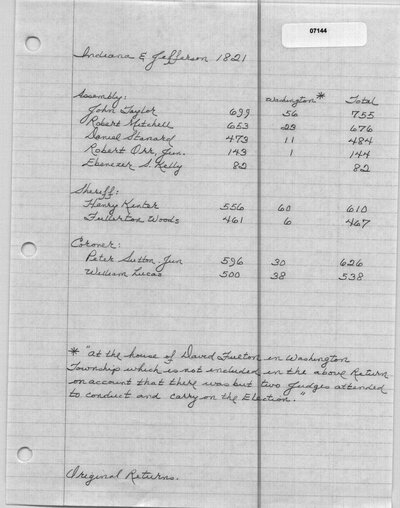 07144
Indiana & Jefferson 1821
Assembly: Washington* Total
John Taylor 699 56 755
Robert Mitchell 653 23 676
Daniel Stanard 473 11 484
Robert Orr Jun. 143 1 144
Ebenezer S. Kelly 82 82
Sheriff:
Henry Kinter 556 60 610
Fullerton Woods 461 6 467
Coroner:
Peter Sutton Jun 596 30 626
William Lucas 500 38 538
* "at the house of David Fulton in Washington
Township which is not included in the above Return
on account that there was but two Judges attended
to conduct and carry on the Election."
Original Returns.